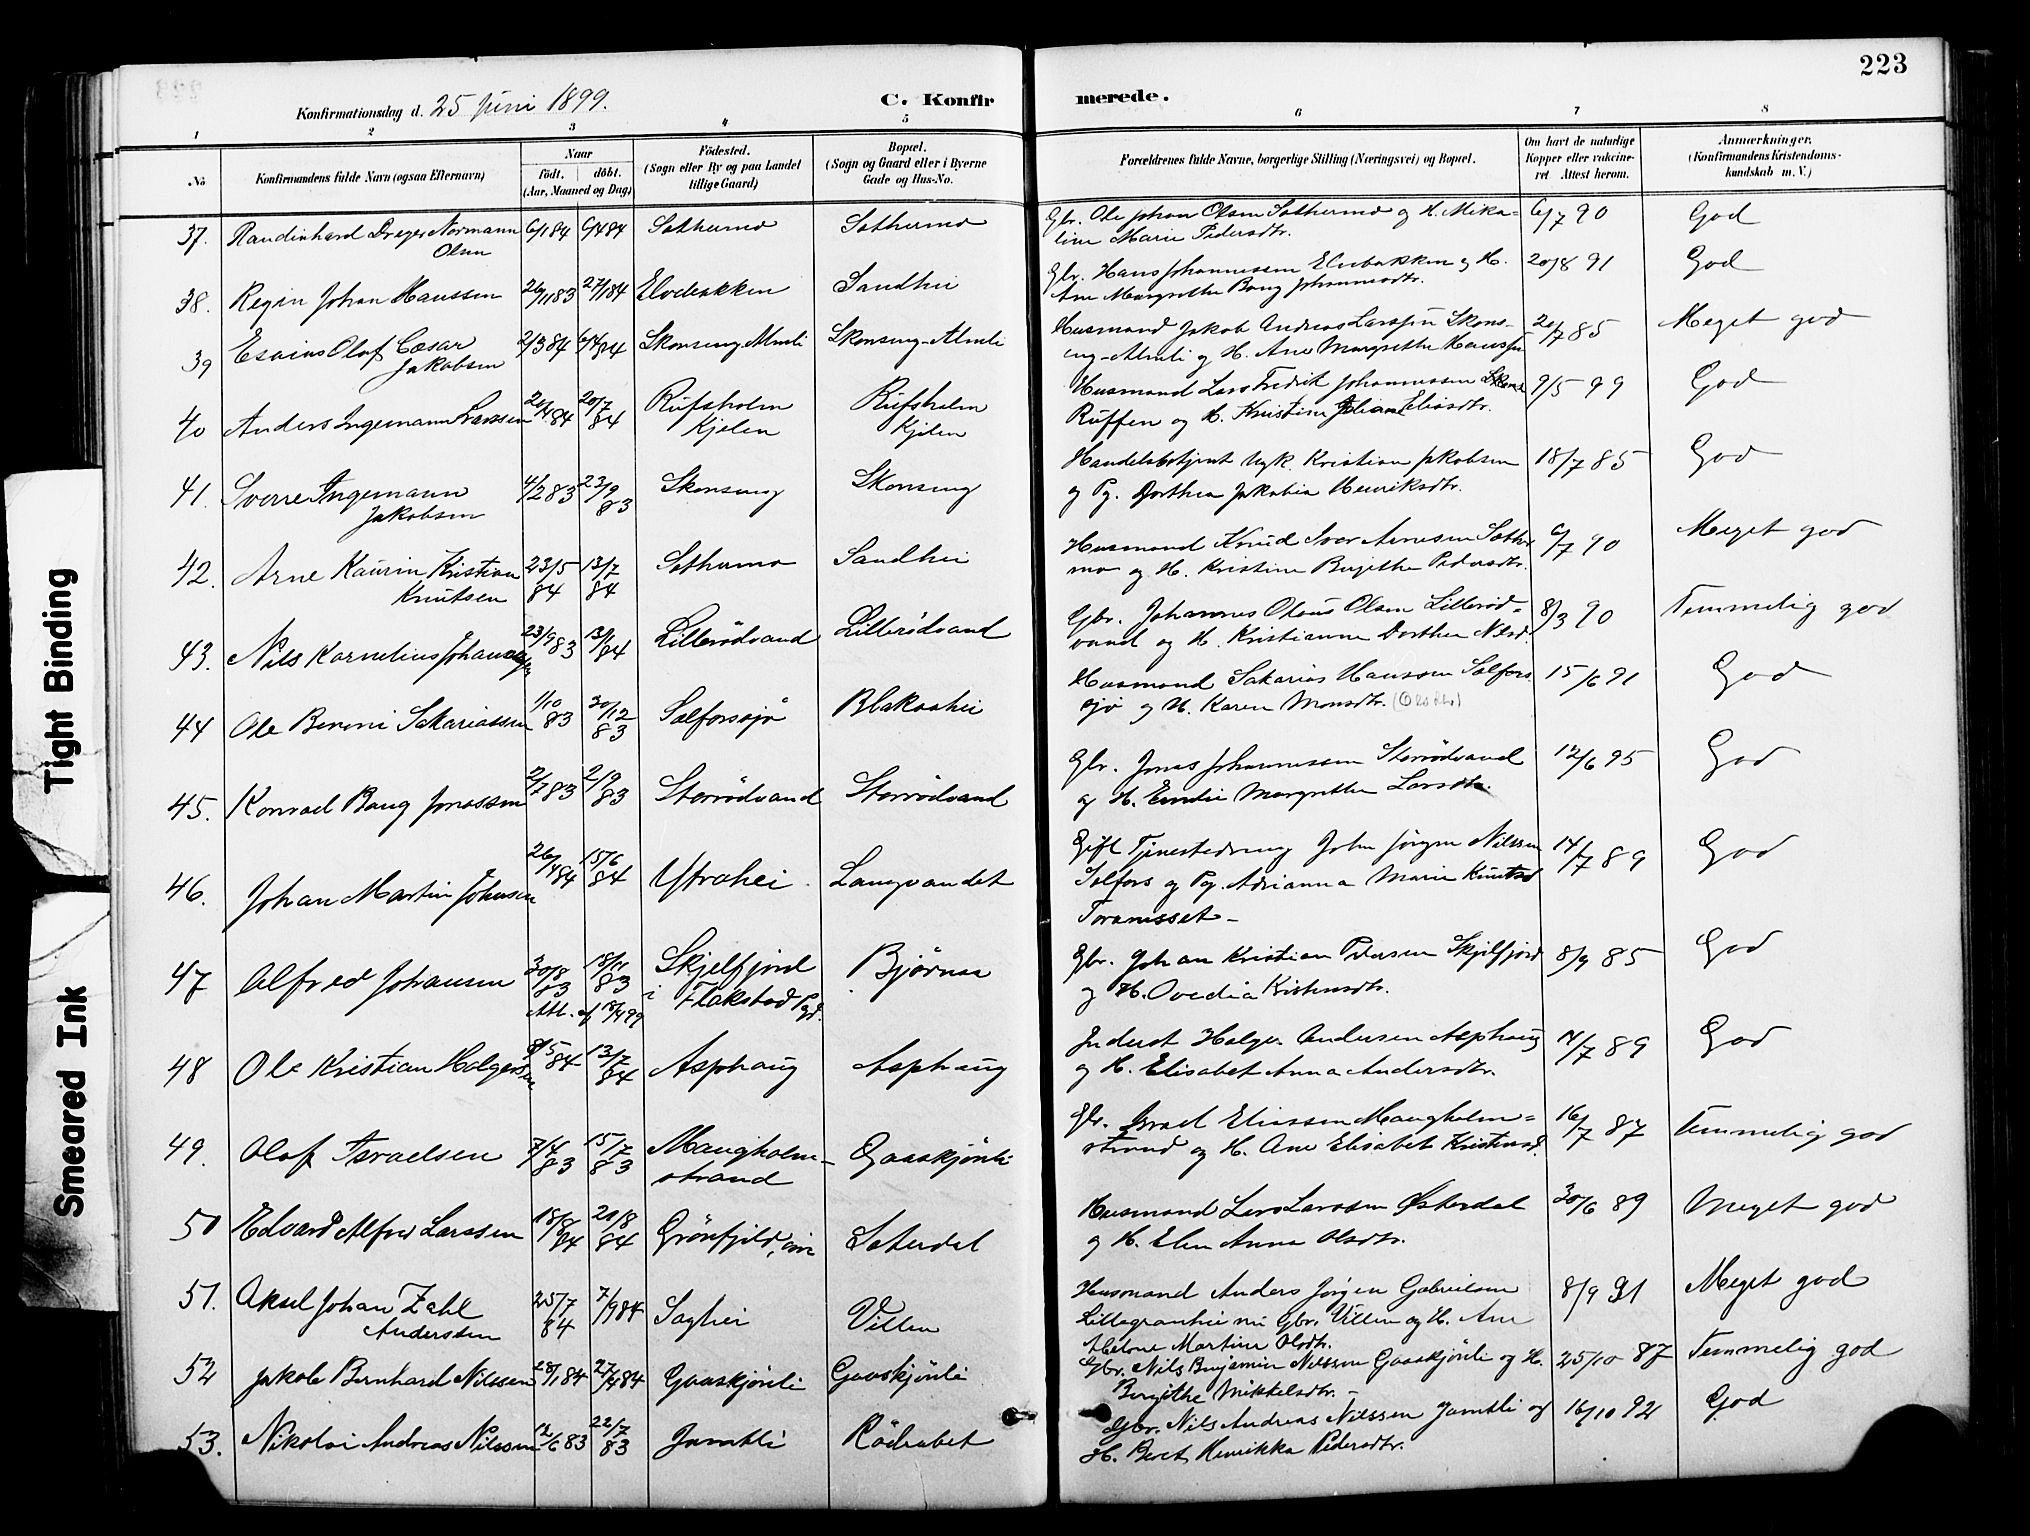 223
Konfirmationsdag d. 25 Juni 1899.
C. Konfirmerede.
1 2 3 4 5 6 7 8
No
Konfirmandens fulde Navn (ogsaa Efternavn)
Naar
født. døbt.
(Aar, Maaned og Dag)
Födested.
(Sogn eller By og paa Landet
tillige Gaard)
Bopæl.
(Sogn og Gaard eller i Byerne
Gade og Hus-No.
Forældrenes fulde Navne, borgerlige Stilling (Næringsvei) og Bopæl.
Om havt de naturlige
Kopper eller vakcine-
ret Attest herom.
Anmærkninger.
(Konfirmandens Kristendoms-
kundskab m. V.)
37. Randinhard Dreyer Normann 6/1 84 6/4 84 Sathermo Sathermo Gbr. Ole Johan Olsen Sathermo og H. Mika- 6/7 90 God
Olsen line Marie Pedersdtr.
38. Regin Johan Hanssen 26/11 83 27/1 84 Elvebakken Sandhei Gbr. Hans Johannessen Elvebakken og H. 20/8 91 God
Ane Margrethe Bang Johannesdtr.
39 Esaias Olaf Cæsar 2/3 84 Skonseng Almli Skonseng-Almli Husmand Jakob Andreas Larssen Skons- 21/7 85 Meget god
Jakobsen eng-Almli og H. Ane Margrethe Hanssen
40 Anders Ingemann Larssen 24/4 84 20/7 84 Rufsholm Rufsholm Husmand Lars Fredrik Johannessen 9/5 99 God
Kjelen Kjelen Ruffen og H. Kristine Juliane Eliasdtr.
41. Sverre Ingemann 4/2 83 23/9 83 Skonseng Skonseng Handelsbetjent Ugk. Kristian Jakobsen 18/7 85 God
Jakobsen og Pg. Dorthea Jakobia Henriksdtr.
42. Arne Kaurin Kristian 23/5 84 13/7 84 Sathermo Sandhei Husmand Knud Iver Arnesen Sather- 6/7 90 Meget god
Knutsen mo og H. Kristine Birgithe Pedersdtr.
43. Nils Kornelius Johannessen 23/9 83 13/1 84 Lillerödvand Lillerödvand Gbr. Johannes Olaus Olsen Lilleröd- 8/3 90 Temmelig god
vand og H. Kristianna Dorthea Nilsd.
44 Ole Beroni Sakariassen 1/10 83 30/12 83 Salforssjö Blakaahei Husmand Sakarias Hanssen Salfors- 15/6 91 God
sjö og H. Karen Monsdtr. (Olsdtr)
45. Konrad Bang Jonassen 2/7 83 2/9 83 Storrödvand Storrödvand Gbr. Jonas Johannessen Storrödvand 12/6 95 God
og H. Emilie Margrethe Larsdtr.
46. Johan Martin Johnsen 26/4 84 15/6 84 Ytrahei Langvandet Gift Tjenestedreng John Jörgen Nilssen 14/7 89 God
Salfors og Pg. Adrianna Marie Knutsd
Toraneset-
47 Alfred Johansen 30/8 83 18/11 83 Skjelfjord Bjørnaa Gbr. Johan Kristian Petersen Skjelfjord 8/9 85 God
Att. af 18/4 99 i Flakstad Pgd. og H. Ovedia Kristensdtr.
48 Ole Kristian Holgersen 8/5 84 13/7 84 Asphaug Asphaug Inderst Holger Andersen Asphaug 14/7 89 God
og H. Elisabet Anna Andersdtr.
49. Olaf Israelsen 7/4 83 15/7 83 Maugholm- Gaaskjönli Gbr. Israel Eliassen Maugholm- 16/7 87 Temmelig god
strand strand og H. Ane Elisabet Kristensd.
50 Edvard Alfred Larssen 18/8 84 Grönfjeld, Saterdal Husmand Lars Larssen Østerdal 30/6 89 Meget god
og H. Elen Anna Olsdtr.
51. Aksel Johan Zahl 25/7 84 7/9 84 Saghei Villen Husmand Anders Jörgen Gabrielsen 8/9 91 Meget god
Anderssen Lillegranhei nu Gbr. Villen og H. Ane
Helene Martine Olsdtr.
52 Jakob Bernhard Nilssen 28/1 84 27/4 84 Gaaskjönli Gaaskjönli Gbr. Nils Benjamin Nilssen Gaaskjönli og H. 25/10 87 Temmelig god
Bergithe Mikkelsdtr.
53. Nikolai Andreas Nilssen 12/6 83 22/7 83 Jamtli Rödsabet Gbr. Nils Andreas Nilssen Jamtli og 16/10 92 God
H. Beret Henrikka Pedersdtr.
Tight Binding
Smeared Ink